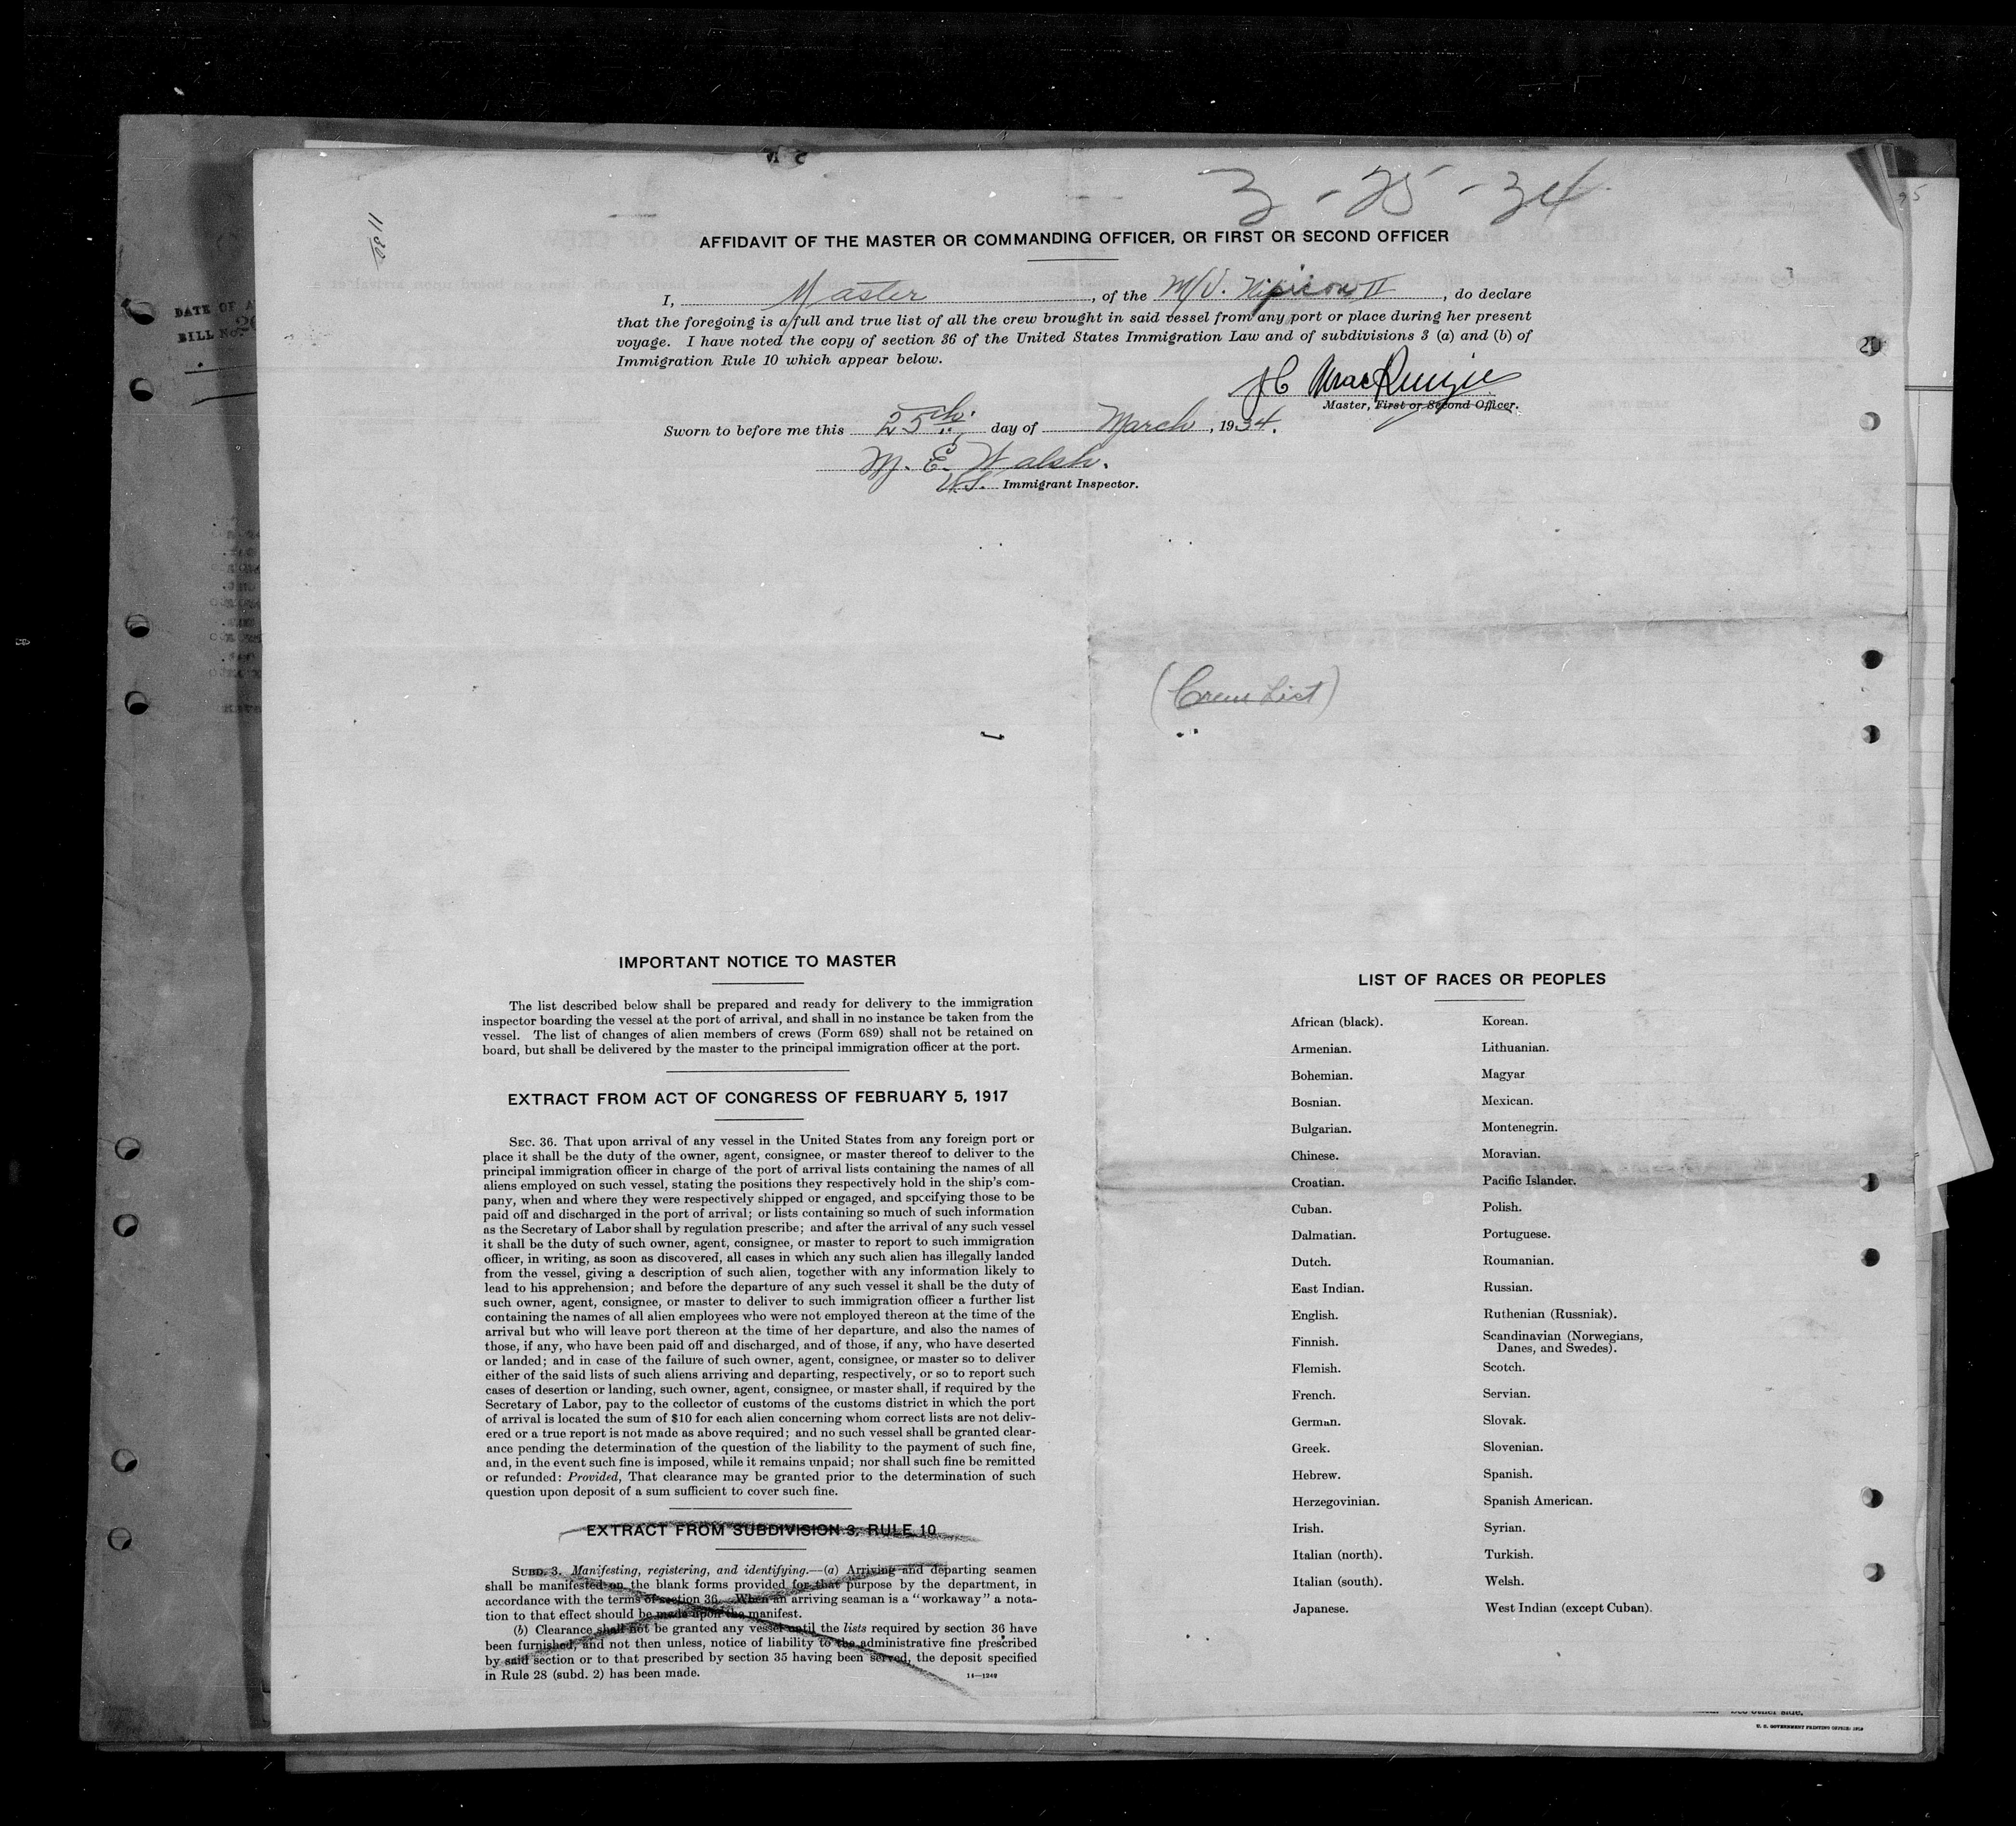 3-25-34
11 30
AFFIDAVIT OF THE MASTER OR COMMANDING OFFICER, OR FIRST OR SECOND OFFICER
I, Master, of the M/V. Nipicon II, do declare
that the foregoing is a full and true list of all the crew brought in said vessel from any port or place during her present
voyage. I have noted the copy of section 36 of the United States Immigration Law and of subdivisions 3 (a) and (b) of
Immigration Rule 10 which appear below.
MacKenzie
Master, First or Second Officer.
Sworn to before me this 25th. day of March, 1934.
M. E. Walsh.
U.S. Immigrant Inspector.
DATE OF A
BILL No.
20
(Crew List)
IMPORTANT NOTICE TO MASTER
The list described below shall be prepared and ready for delivery to the immigration
inspector boarding the vessel at the port of arrival, and shall in no instance be taken from the
vessel. The list of changes of alien members of crews (Form 689) shall not be retained on
board, but shall be delivered by the master to the principal immigration officer at the port.
EXTRACT FROM ACT OF CONGRESS OF FEBRUARY 5, 1917
SEC. 36. That upon arrival of any vessel in the United States from any foreign port or
place it shall be the duty of the owner, agent, consignee, or master thereof to deliver to the
principal immigration officer in charge of the port of arrival lists containing the names of all
aliens employed on such vessel, stating the positions they respectively hold in the ship's com-
pany, when and where they were respectively shipped or engaged, and specifying those to be
paid off and discharged in the port of arrival; or lists containing so much of such information
as the Secretary of Labor shall by regulation prescribe; and after the arrival of any such vessel
it shall be the duty of such owner, agent, consignee, or master to report to such immigration
officer, in writing, as soon as discovered, all cases in which any such alien has illegally landed
from the vessel, giving a description of such alien, together with any information likely to
lead to his apprehension; and before the departure of any such vessel it shall be the duty of
such owner, agent, consignee, or master to deliver to such immigration officer a further list
containing the names of all alien employees who were not employed thereon at the time of the
arrival but who will leave port thereon at the time of her departure, and also the names of
those, if any, who have been paid off and discharged, and of those, if any, who have deserted
or landed; and in case of the failure of such owner, agent, consignee, or master so to deliver
either of the said lists of such aliens arriving and departing, respectively, or so to report such
cases of desertion or landing, such owner, agent, consignee, or master shall, if required by the
Secretary of Labor, pay to the collector of customs of the customs district in which the port
of arrival is located the sum of $10 for each alien concerning whom correct lists are not deliv-
ered or a true report is not made as above required; and no such vessel shall be granted clear-
ance pending the determination of the question of the liability to the payment of such fine,
and, in the event such fine is imposed, while it remains unpaid; nor shall such fine be remitted
or refunded: Provided, That clearance may be granted prior to the determination of such
question upon deposit of a sum sufficient to cover such fine.
EXTRACT FROM SUBDIVISION 3, RULE 10
SUBD. 3. Manifesting, registering, and identifying.—(a) Arriving and departing seamen
shall be manifested on the blank forms provided for that purpose by the department, in
accordance with the terms of section 36. When an arriving seaman is a "workaway" a nota-
tion to that effect should be made upon the manifest.
(b) Clearance shall not be granted any vessel until the lists required by section 36 have
been furnished, and not then unless, notice of liability to the administrative fine prescribed
by said section or to that prescribed by section 35 having been served, the deposit specified
in Rule 28 (subd. 2) has been made.
14—1240
LIST OF RACES OR PEOPLES
African (black). Korean.
Armenian. Lithuanian.
Bohemian. Magyar
Bosnian. Mexican.
Bulgarian. Montenegrin.
Chinese. Moravian.
Croatian. Pacific Islander.
Cuban. Polish.
Dalmatian. Portuguese.
Dutch. Roumanian.
East Indian. Russian.
English. Ruthenian (Russniak).
Finnish. Scandinavian (Norwegians,
Danes, and Swedes).
Flemish. Scotch.
French. Servian.
German. Slovak.
Greek. Slovenian.
Hebrew. Spanish.
Herzegovinian. Spanish American.
Irish. Syrian.
Italian (north). Turkish.
Italian (south). Welsh.
Japanese. West Indian (except Cuban).
other side.
U. S. GOVERNMENT PRINTING OFFICE: 1919